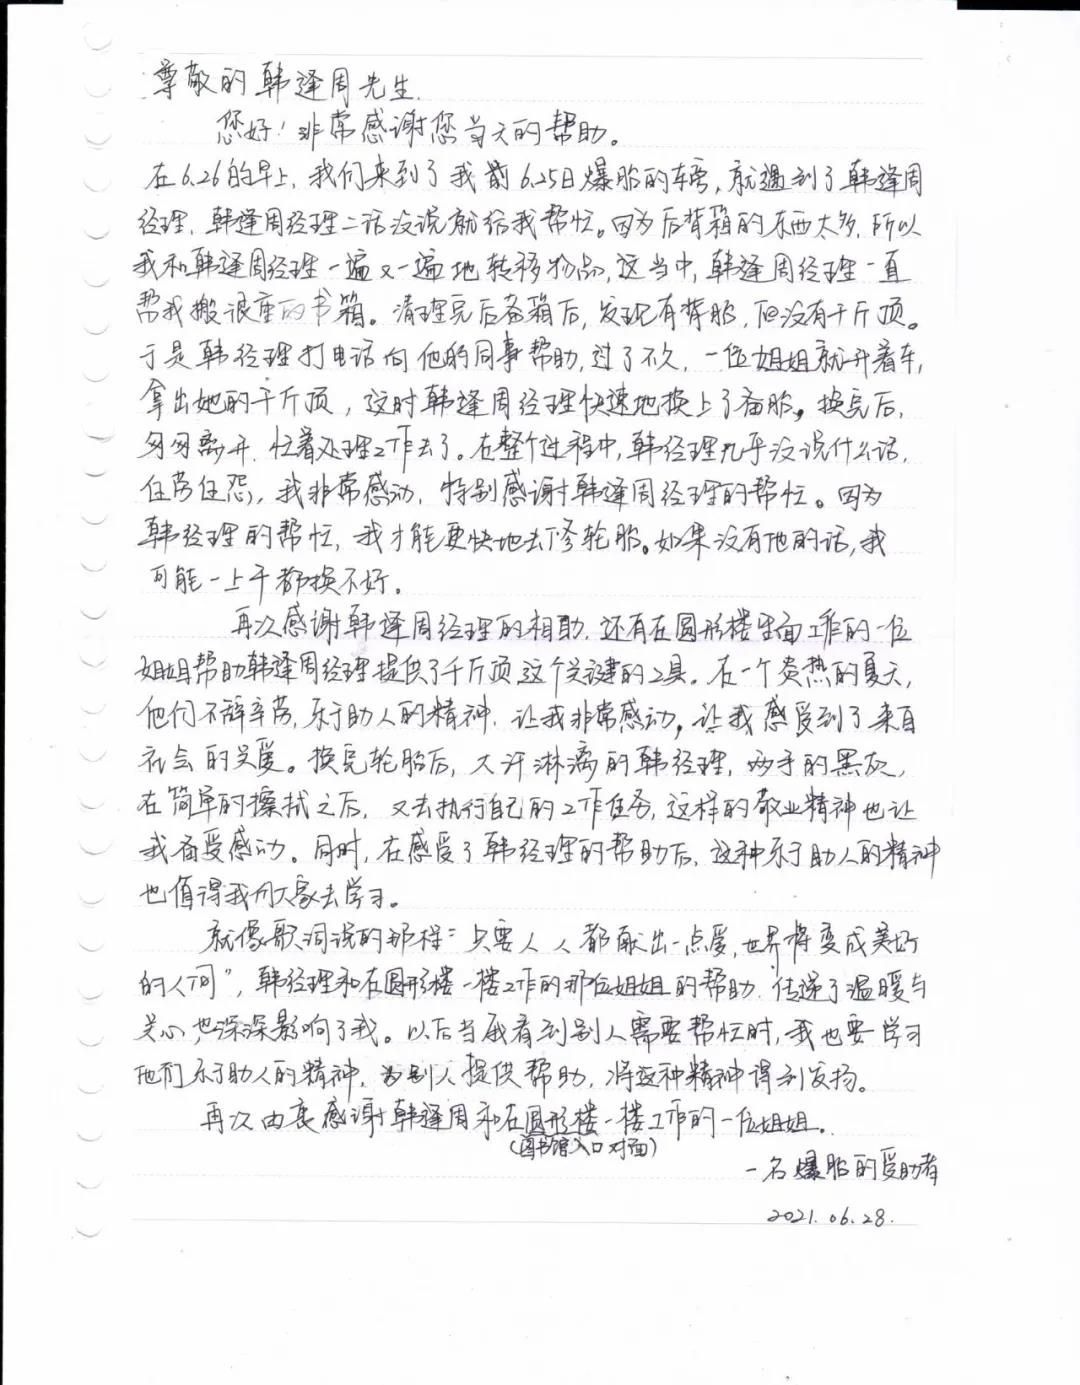 尊敬的韩逢周先生.
您好！非常感谢您当天的帮助。
在6.26的早上，我们来到了我前6.25日爆胎的车旁，就遇到了韩逢周
经理，韩逢周经理二话没说就给我帮忙。因为后背箱的东西太多，所以
我和韩逢周经理一遍又一遍地转移物品，这当中，韩逢周经理一直
帮我搬很重的书箱。清理完后备箱后，发现有背胎，但没有千斤顶。
于是韩经理打电话向他的同事帮助，过了不久，一位姐姐就开着车，
拿出她的千斤顶，这时韩逢周经理快速地换上了备胎。换完后，
匆匆离开，忙着处理工作去了。在整个过程中，韩经理几乎没说什么话，
任劳任怨，我非常感动，特别感谢韩逢周经理的帮忙。因为
韩经理的帮忙，我才能更快地去修轮胎。如果没有他的话，我
可能一上午都换不好。
再次感谢韩逢周经理的相助，还有在圆形楼里面工作的一位
姐姐帮助韩逢周经理提供了千斤顶这个关键的工具。在一个炎热的夏天，
他们不辞辛劳，乐于助人的精神，让我非常感动，让我感受到了来自
社会的关爱。换完轮胎后，大汗淋漓的韩经理，两手的黑灰，
在简单的擦拭之后，又去执行自己的工作任务，这样的敬业精神也让
我备受感动。同时，在感受了韩经理的帮助后，这种乐于助人的精神
也值得我们大家去学习。
就像歌词说的那样“只要人人都献出一点爱，世界将变成美好
的人间”，韩经理和在圆形楼一楼工作的那位姐姐的帮助，传递了温暖与
关心，也深深影响了我。以后当我看到别人需要帮忙时，我也要学习
他们乐于助人的精神，为别人提供帮助，将这种精神得到发扬。
再次由衷感谢韩逢周和在圆形楼一楼工作的一位姐姐。
（图书馆入口对面）
一名爆胎的受助者
2021.06.28.